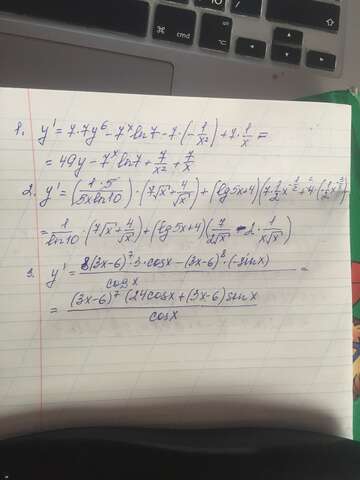 1. y' = 7·7y⁶ - 7ˣ ln7 - 7·(-1/x²) + 7·1/x =
= 49y - 7ˣ ln7 + 7/x² + 7/x
2. y' = (1·5/5x ln10)·(7√x + 4/√x) + (lg5x+4)(7·1/2 x^(-1/2) + 4·(-1/2 x^(-3/2))
= 1/ln10 ·(7√x + 4/√x) + (lg5x+4)(7/2√x - 2·1/x√x)
3. y' = 8(3x-6)⁷·3·cosx - (3x-6)⁸·(-sinx)/cosx =
= (3x-6)⁷(24cosx + (3x-6)sinx/cosx